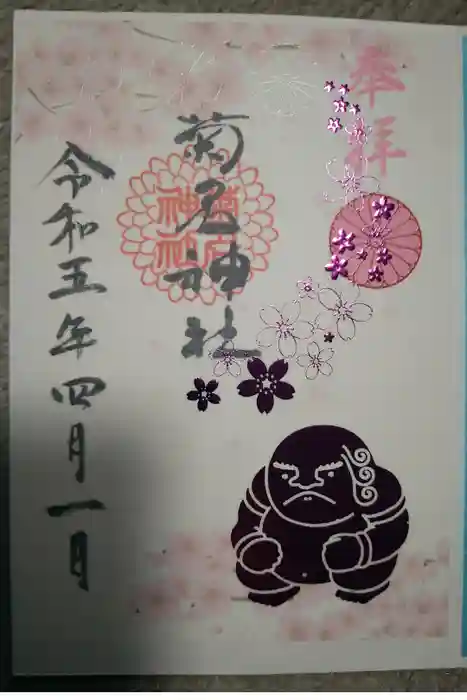 奉拝
菊名神社
菊名神社
令和五年四月一日